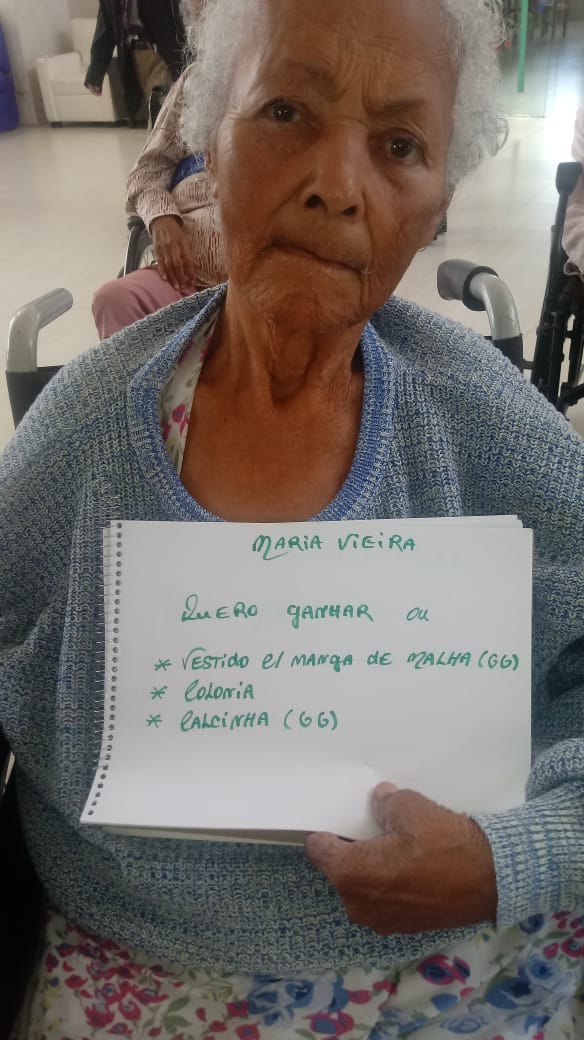 MARIA VIEIRA
QUERO GANHAR OU
* VESTIDO C/ MANGA DE MALHA (GG)
* COLONIA
* CALCINHA (GG)